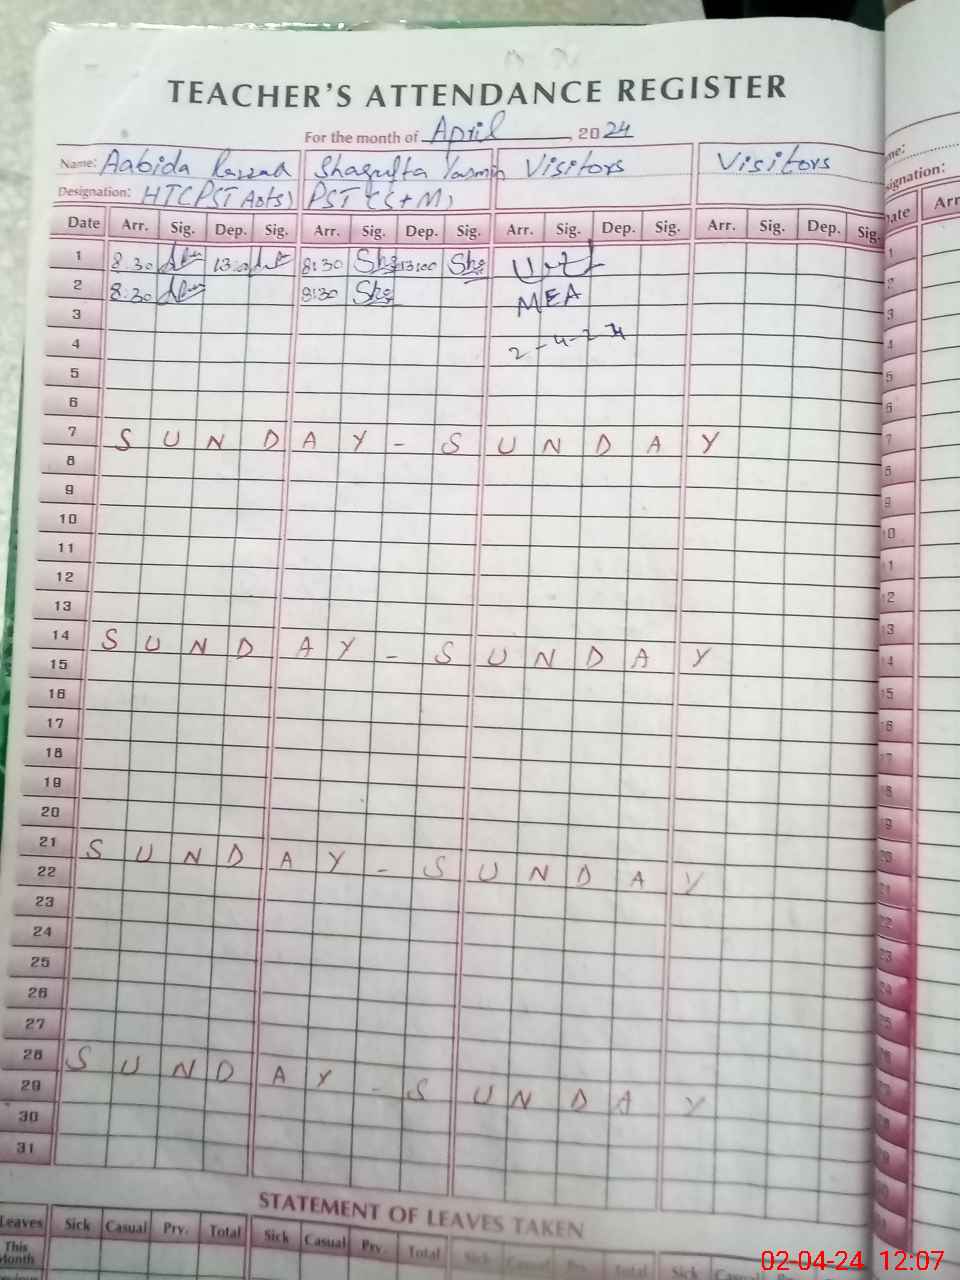 TEACHER'S ATTENDANCE REGISTER
For the month of April 2024
Name: Aabida Shagufta Yasmin Visitors Visitors
Designation: HT(PST Arts) PST (S+M)
Date Arr. Sig. Dep. Sig. Arr. Sig. Dep. Sig. Arr. Sig. Dep. Sig. Arr. Sig. Dep. Sig.
1 8:30 13:0 8:30 Sha 13:00 Sha
2 8:30 8:30 Sha MEA
3
4 2-4-24
5
6
7 SUNDAY - SUNDAY
8
9
10
11
12
13
14 SUNDAY - SUNDAY
15
16
17
18
19
20
21 SUNDAY - SUNDAY
22
23
24
25
26
27
28 SUNDAY - SUNDAY
29
30
31
STATEMENT OF LEAVES TAKEN
Leaves Sick Casual Prv. Total Sick Casual Prv. Total Sick Casual Prv. Total Sick Casual
This Month
02-04-24 12:07